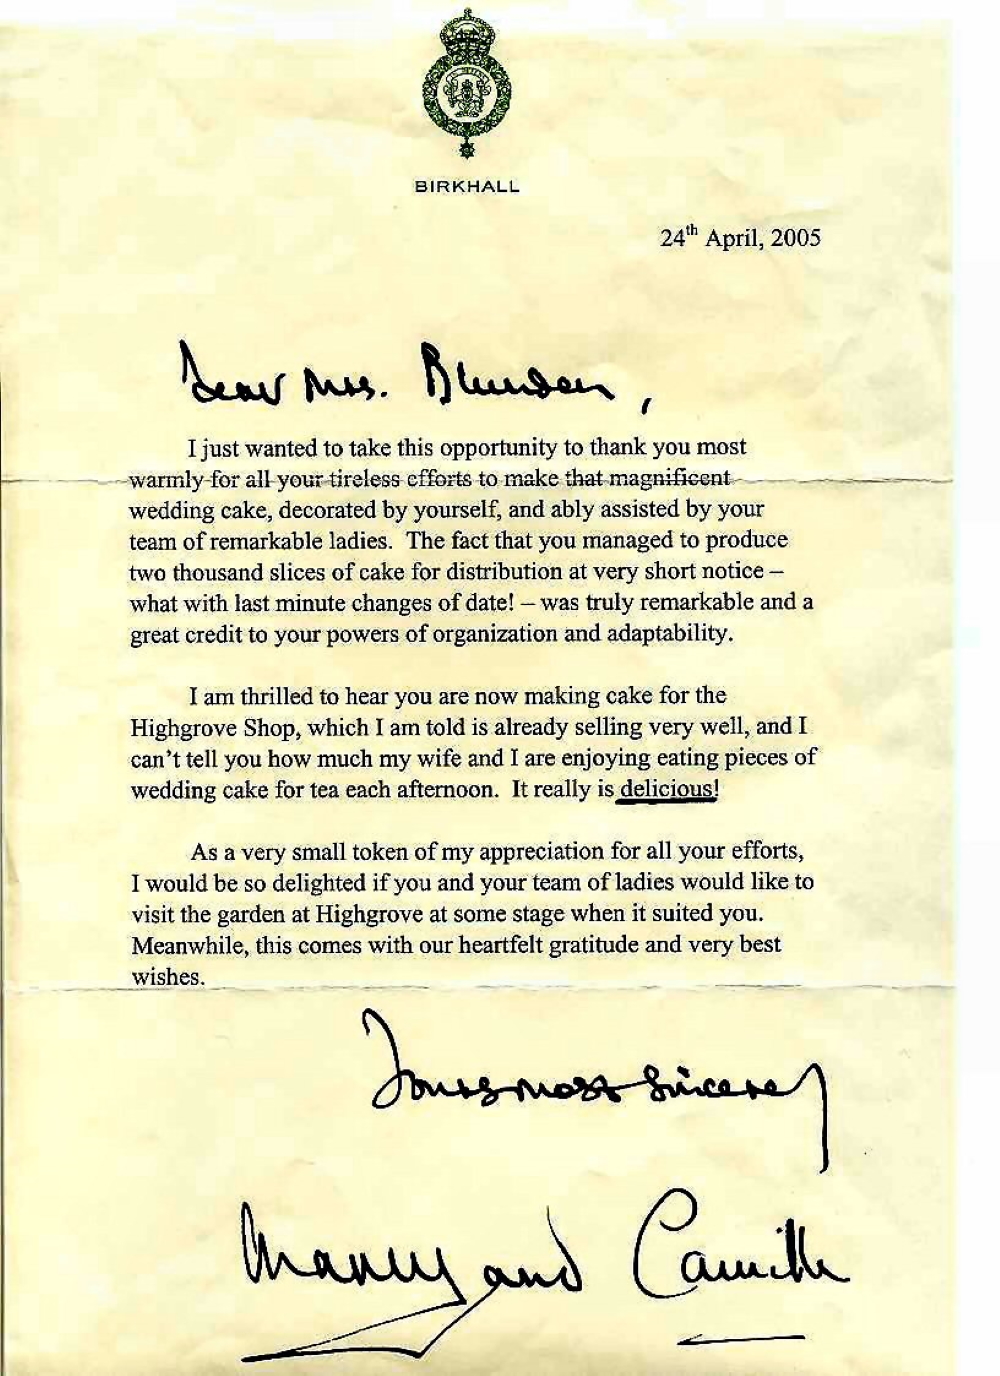 BIRKHALL
24th April, 2005
Dear Mrs. Blunden,
I just wanted to take this opportunity to thank you most
warmly for all your tireless efforts to make that magnificent
wedding cake, decorated by yourself, and ably assisted by your
team of remarkable ladies. The fact that you managed to produce
two thousand slices of cake for distribution at very short notice –
what with last minute changes of date! – was truly remarkable and a
great credit to your powers of organization and adaptability.
I am thrilled to hear you are now making cake for the
Highgrove Shop, which I am told is already selling very well, and I
can't tell you how much my wife and I are enjoying eating pieces of
wedding cake for tea each afternoon. It really is delicious!
As a very small token of my appreciation for all your efforts,
I would be so delighted if you and your team of ladies would like to
visit the garden at Highgrove at some stage when it suited you.
Meanwhile, this comes with our heartfelt gratitude and very best
wishes.
Yours most sincerely
and Camilla